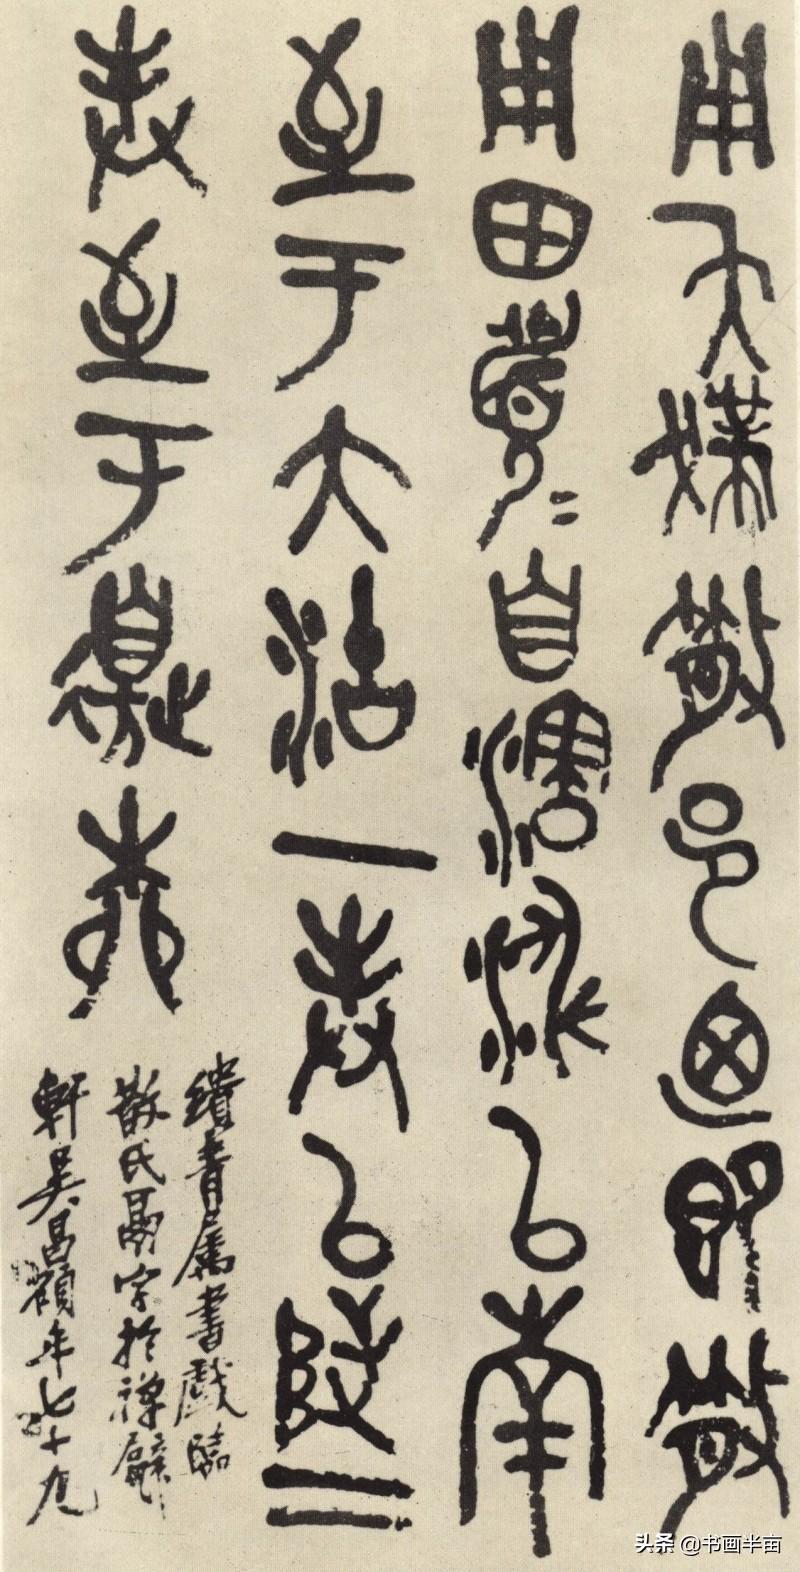 用夨撲散邑廼即散
用田眉〻自瀗涉以南
至于大沽一封以陟二
封至于邊柳
繢青屬書戲臨
散氏鬲字於禪甓
軒吳昌碩年七十九
头条 @书画半亩